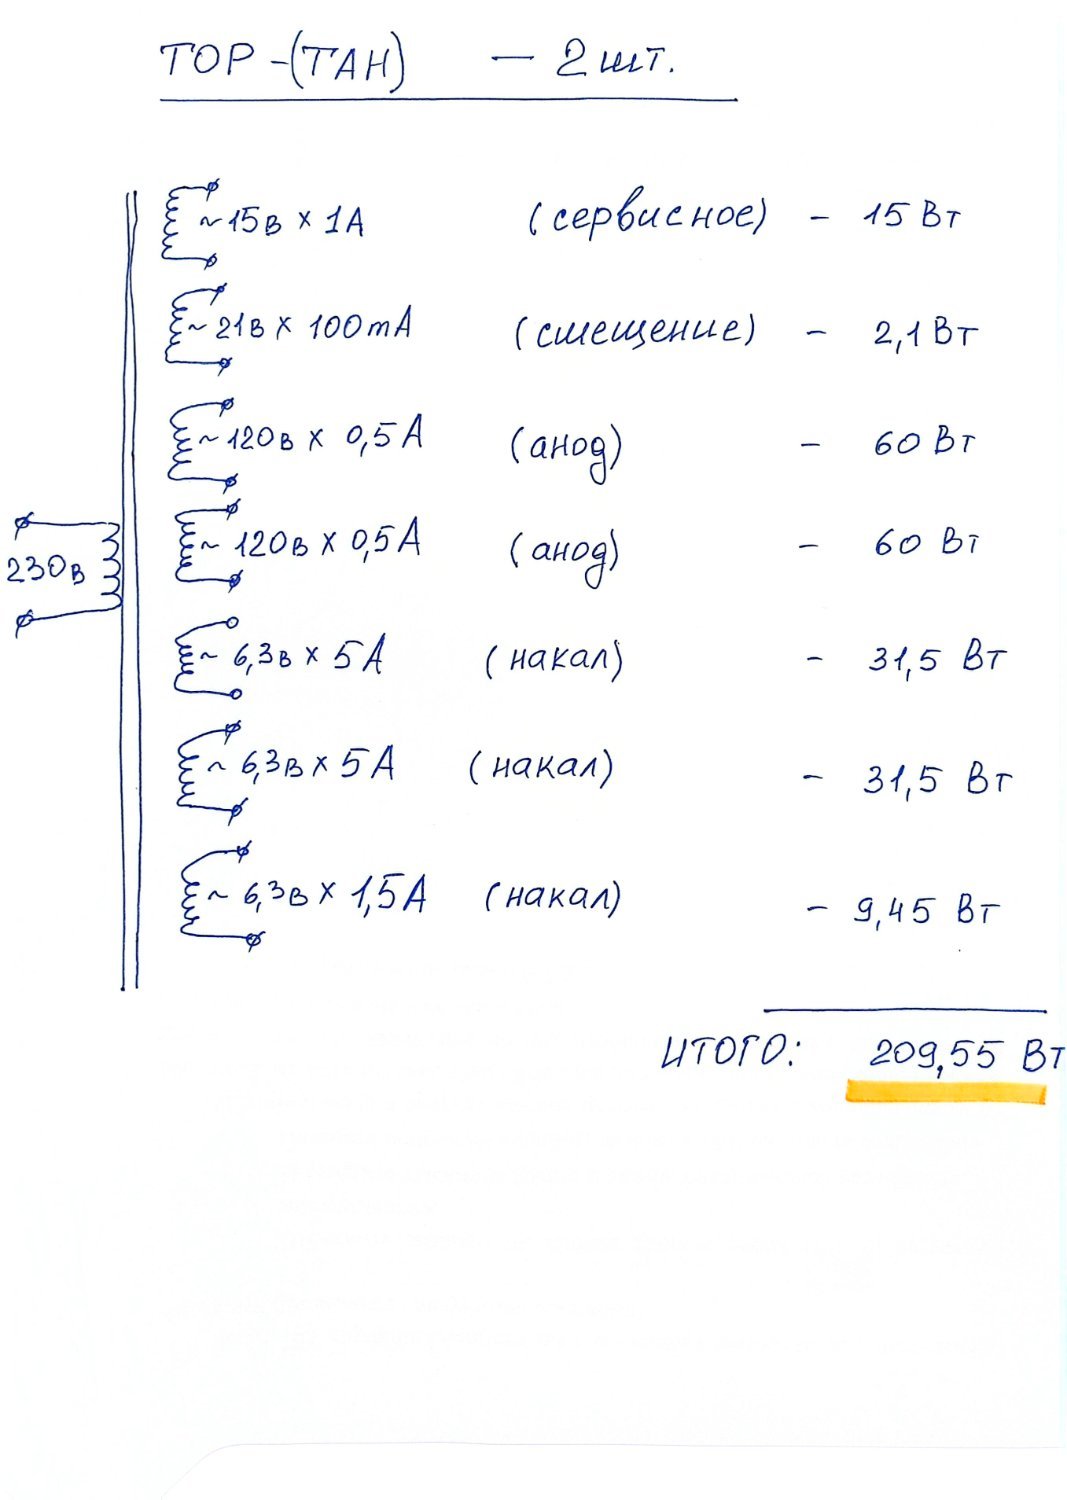 ТОР-(ТАН) — 2 шт.
~15в × 1А (сервисное) - 15 Вт
~21в × 100mA (смещение) - 2,1 Вт
~120в × 0,5А (анод) - 60 Вт
~120в × 0,5А (анод) - 60 Вт
230в
~6,3в × 5А (накал) - 31,5 Вт
~6,3в × 5А (накал) - 31,5 Вт
~6,3в × 1,5А (накал) - 9,45 Вт
ИТОГО: 209,55 Вт